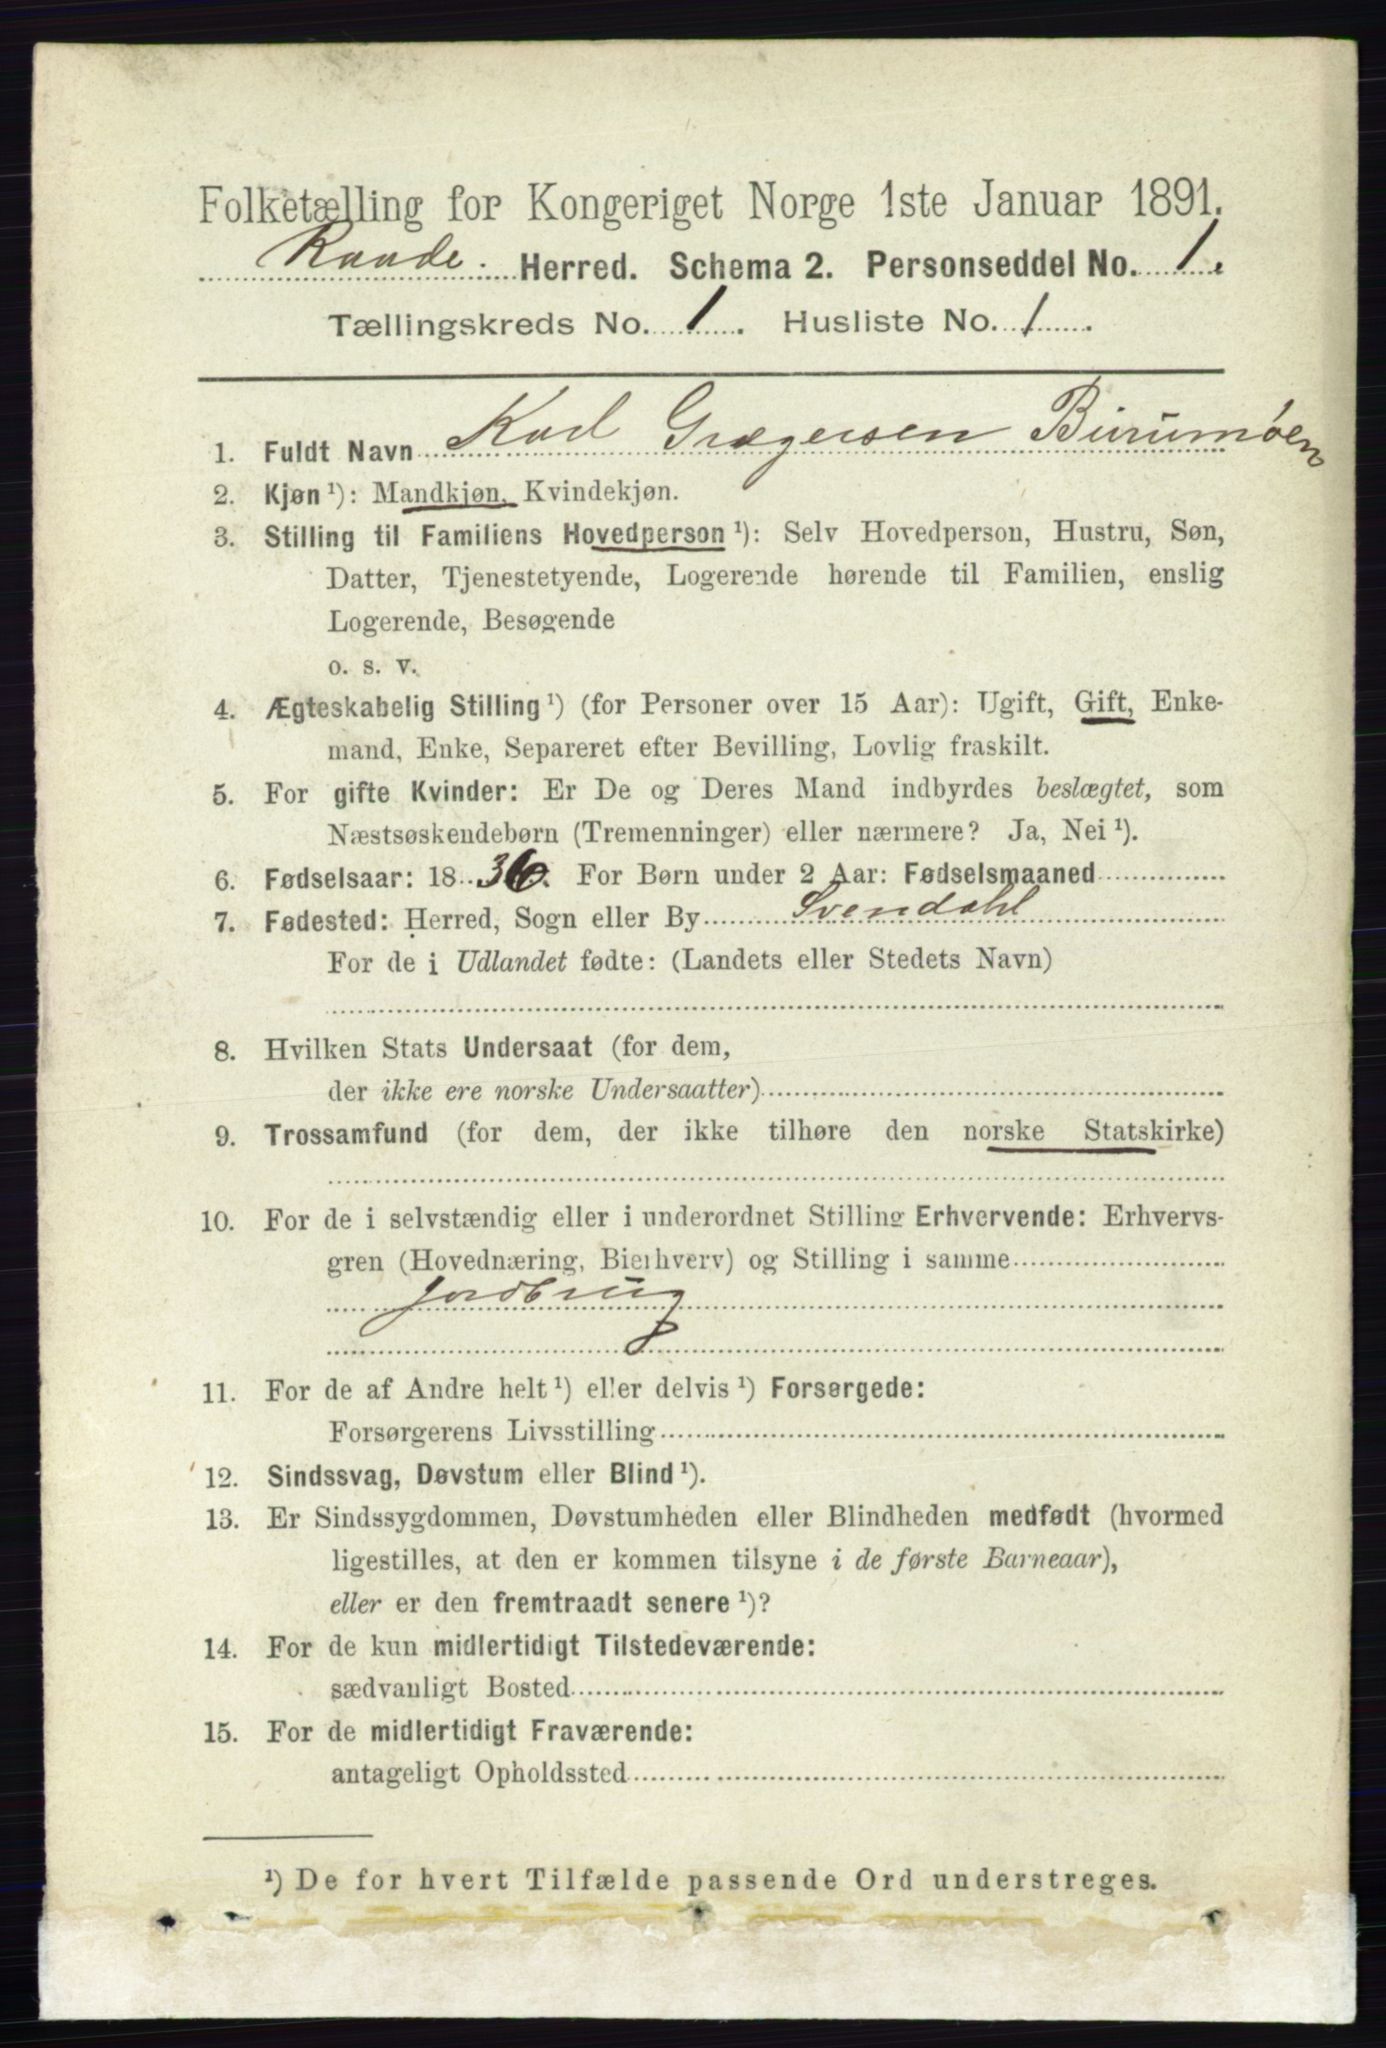 Folketælling for Kongeriget Norge 1ste Januar 1891.
Raade. Herred. Schema 2. Personseddel No. 1.
Tællingskreds No. 1. Husliste No. 1.
1. Fuldt Navn Karl Grægersen
2. Kjøn ¹): Mandkjøn, Kvindekjøn.
3. Stilling til Familiens Hovedperson ¹): Selv Hovedperson, Hustru, Søn,
Datter, Tjenestetyende, Logerende hørende til Familien, enslig
Logerende, Besøgende
o. s. v.
4. Ægteskabelig Stilling ¹) (for Personer over 15 Aar): Ugift, Gift, Enke-
mand, Enke, Separeret efter Bevilling, Lovlig fraskilt.
5. For gifte Kvinder: Er De og Deres Mand indbyrdes beslægtet, som
Næstsøskendebørn (Tremenninger) eller nærmere? Ja, Nei ¹).
6. Fødselsaar: 1836. For Børn under 2 Aar: Fødselsmaaned
7. Fødested: Herred, Sogn eller By Svendahl
For de i Udlandet fødte: (Landets eller Stedets Navn)
8. Hvilken Stats Undersaat (for dem,
der ikke ere norske Undersaatter)
9. Trossamfund (for dem, der ikke tilhøre den norske Statskirke)
10. For de i selvstændig eller i underordnet Stilling Erhvervende: Erhvervs-
gren (Hovednæring, Bierhverv) og Stilling i samme
Jordbrug
11. For de af Andre helt ¹) eller delvis ¹) Forsørgede:
Forsørgerens Livsstilling
12. Sindssvag, Døvstum eller Blind ¹).
13. Er Sindssygdommen, Døvstumheden eller Blindheden medfødt (hvormed
ligestilles, at den er kommen tilsyne i de første Barneaar),
eller er den fremtraadt senere ¹)?
14. For de kun midlertidigt Tilstedeværende:
sædvanligt Bosted
15. For de midlertidigt Fraværende:
antageligt Opholdssted
¹) De for hvert Tilfælde passende Ord understreges.